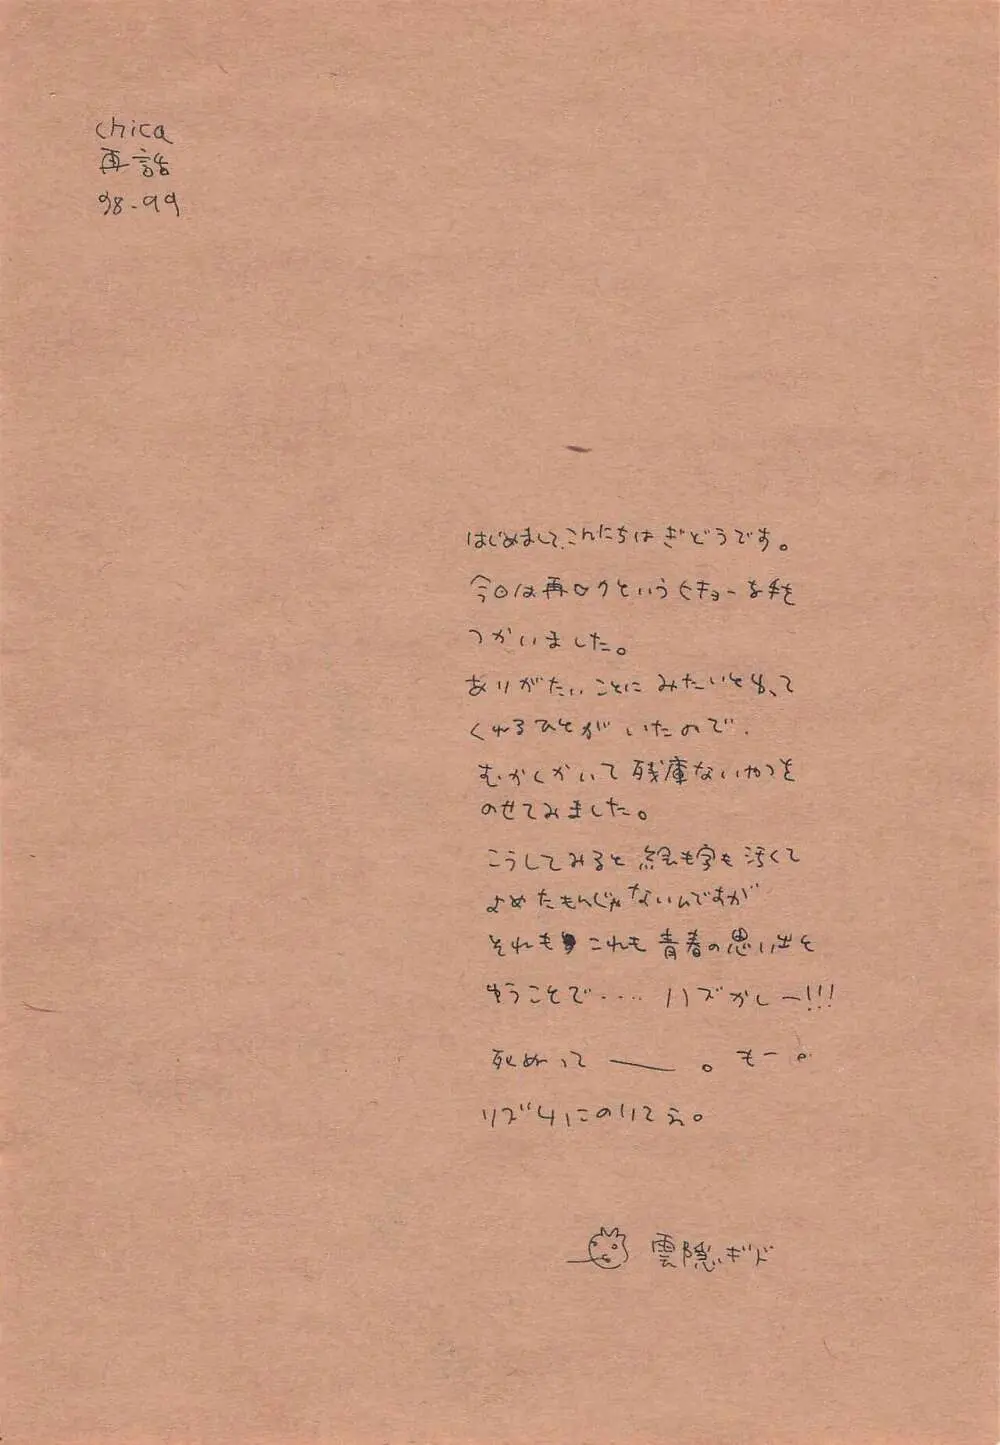 chica
再話
98-99
はじめまして、こんにちは ぎどうです。
今回は再ロクというヒキョーな手を
つかいました。
ありがたいことに みたいと言って
くれるひとが いたので、
むかしかいて 残庫ないやつを
のせてみました。
こうしてみると 絵も字も 汚くて
よめたもんじゃないんですが
それも これも 青春の思い出と
ゆうことで‥‥ ハズかしー!!!
死ぬって ――。もー。
リズムにのりてえ。
雲隠ギド